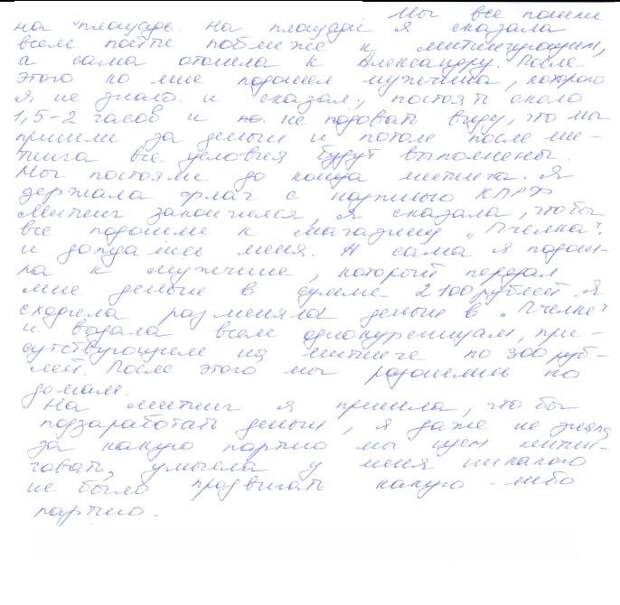 Мы все пошли
на площадь. На площади я сказала
всем пойти поближе к митингующим,
а сама отошла к Александру. После
этого ко мне подошел мужчина, которого
я не знаю и сказал, постоять около
1,5-2 часов и не подовать виду, что мы
пришли за деньги и потом после ми-
тинга все условия будут выполнены.
Мы постояли до конца митинга. Я
держала флаг с надписью КПРФ
Митинг закончился, я сказала, чтобы
все подошли к магазину „Пчелка".
и дождались меня. А сама я подош-
ла к мужчине, который передал
мне деньги в сумме 2100 рублей. Я
сходила разменяла деньги в „Пчелке"
и отдала всем однокурсницам, при-
сутствующим на митинге по 300 руб-
лей. После этого мы разошлись по
домам.
На митинг я пришла, что бы
подзаработать деньги, я даже не знала
за какую партию мы идем митин-
говать, умысла у меня никакого
не было продвигать какую-либо
партию.